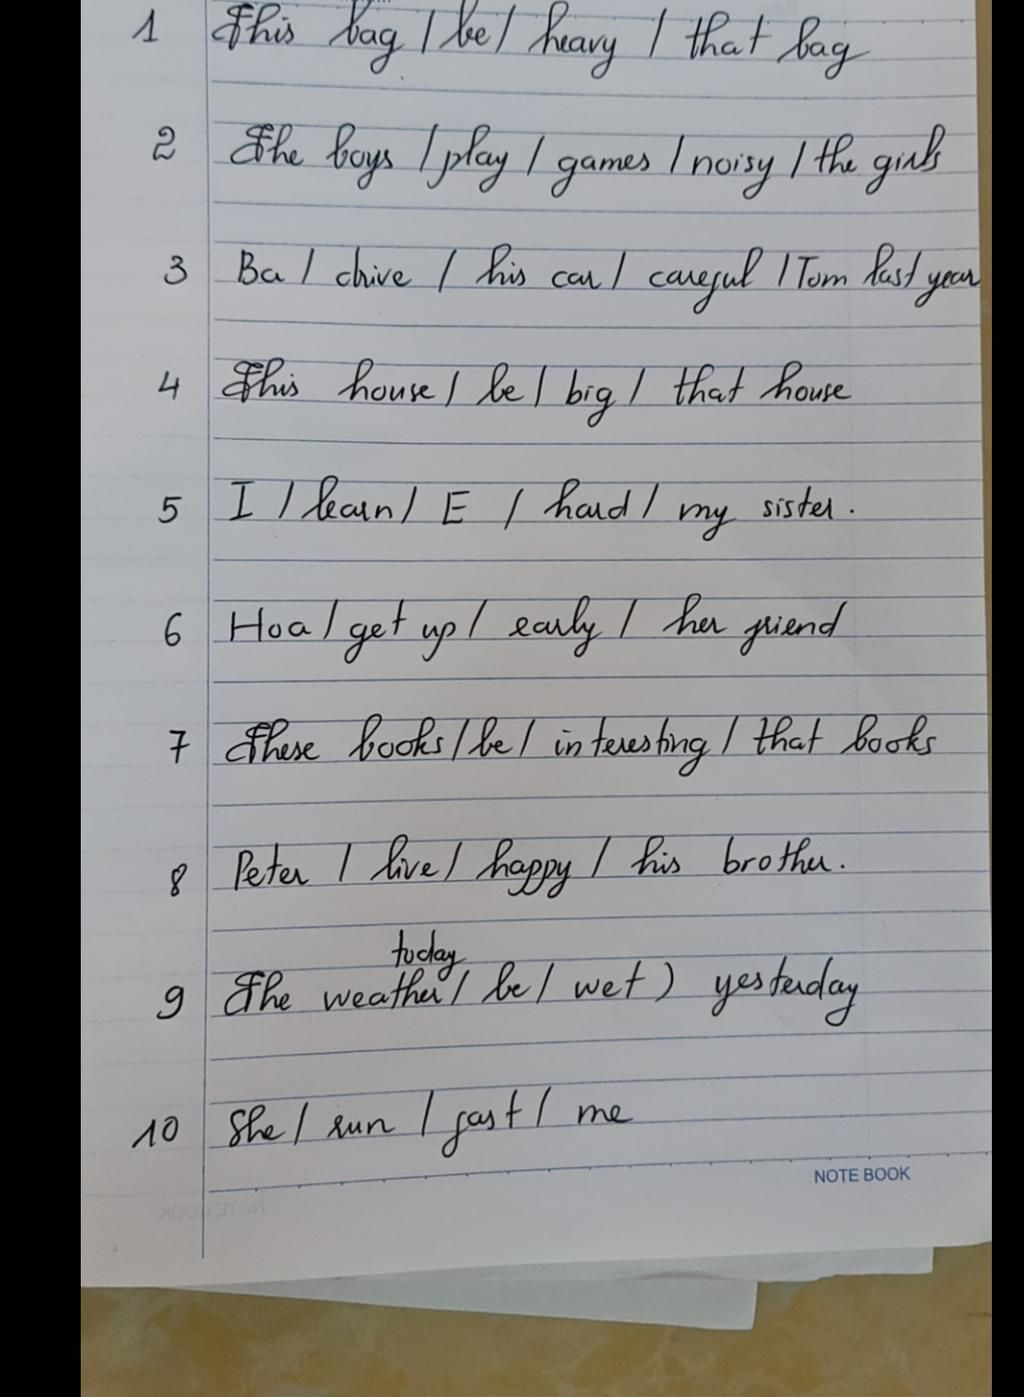 1 This bag / be / heavy / that bag
2 The boys / play / games / noisy / the girls
3 Ba / drive / his car / careful / Tom last year
4 This house / be / big / that house
5 I / learn / E / hard / my sister.
6 Hoa / get up / early / her friend
7 These books / be / interesting / that books
8 Peter / live / happy / his brother.
today
9 The weather / be / wet ) yesterday
10 She / run / fast / me
NOTE BOOK